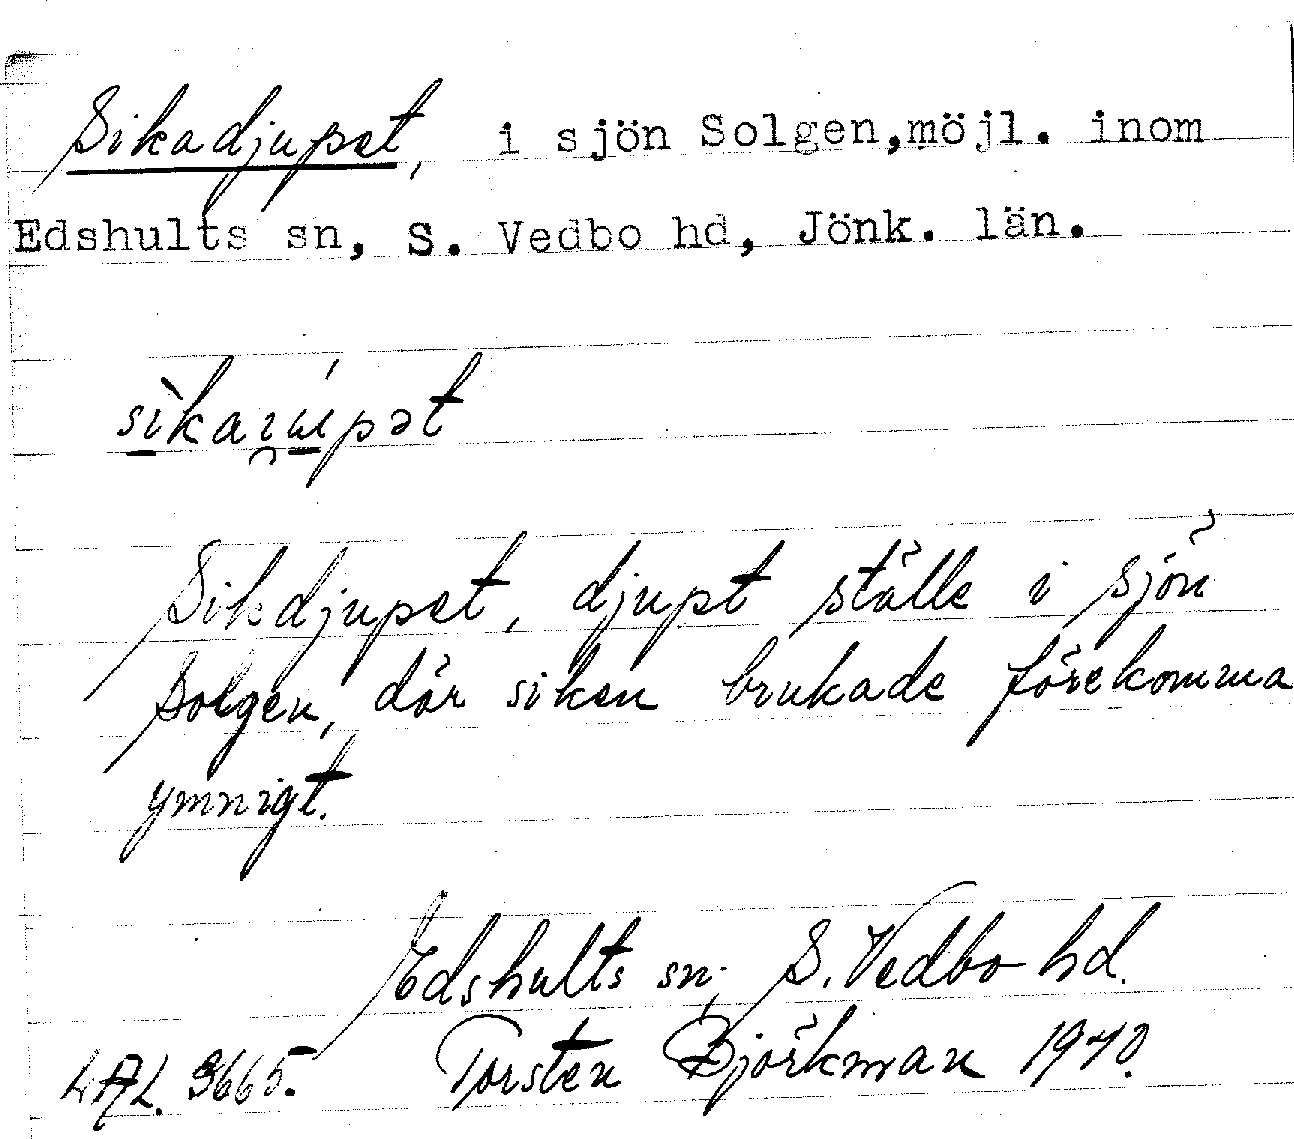 Sikadjupet, i sjön Solgen, möjl. inom
Edshults sn, S. Vedbo hd, Jönk. län.
Sikdjupet, djupt ställe i sjön
Solgen, där siken brukade förekomma
ymnigt.
Edshults sn, S. Vedbo hd.
LAL. 3665. Torsten Björkman 1940.